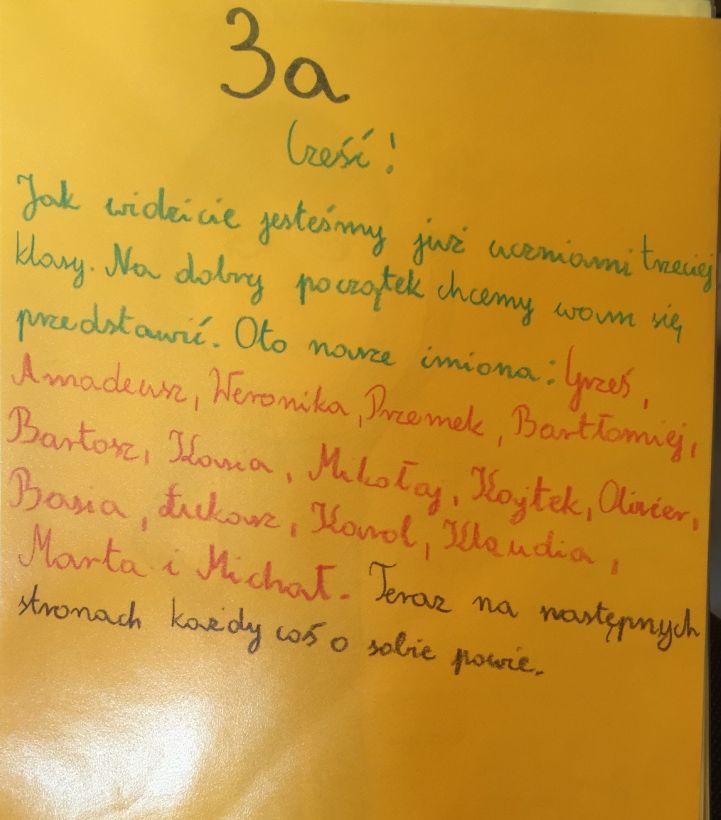 3a
Cześć!
Jak widzicie jesteśmy już uczniami trzeciej
klasy. Na dobry początek chcemy wam się
przedstawić. Oto nasze imiona: Grześ,
Amadeusz, Weronika, Przemek, Bartłomiej,
Bartosz, Kasia, Mikołaj, Kajtek, Oliwier,
Basia, Łukasz, Karol, Klaudia,
Marta i Michał. Teraz na następnych
stronach każdy coś o sobie powie.